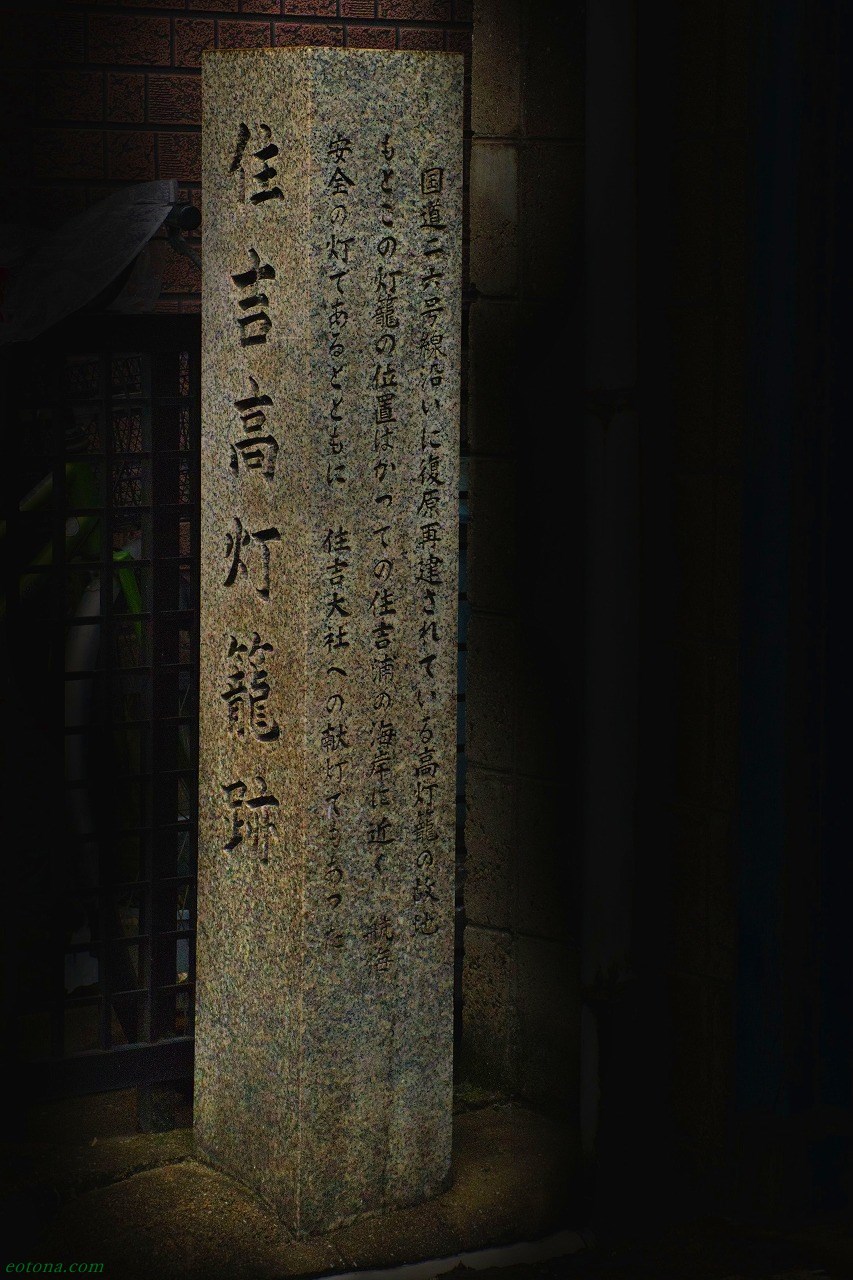 住吉高灯籠跡
国道二六号線沿いに復原再建されている高灯籠の故地
もとこの灯籠の位置はかつての住吉浦の海岸に近く 航海
安全の灯であるとともに 住吉大社への献灯でもあった
eotona.com